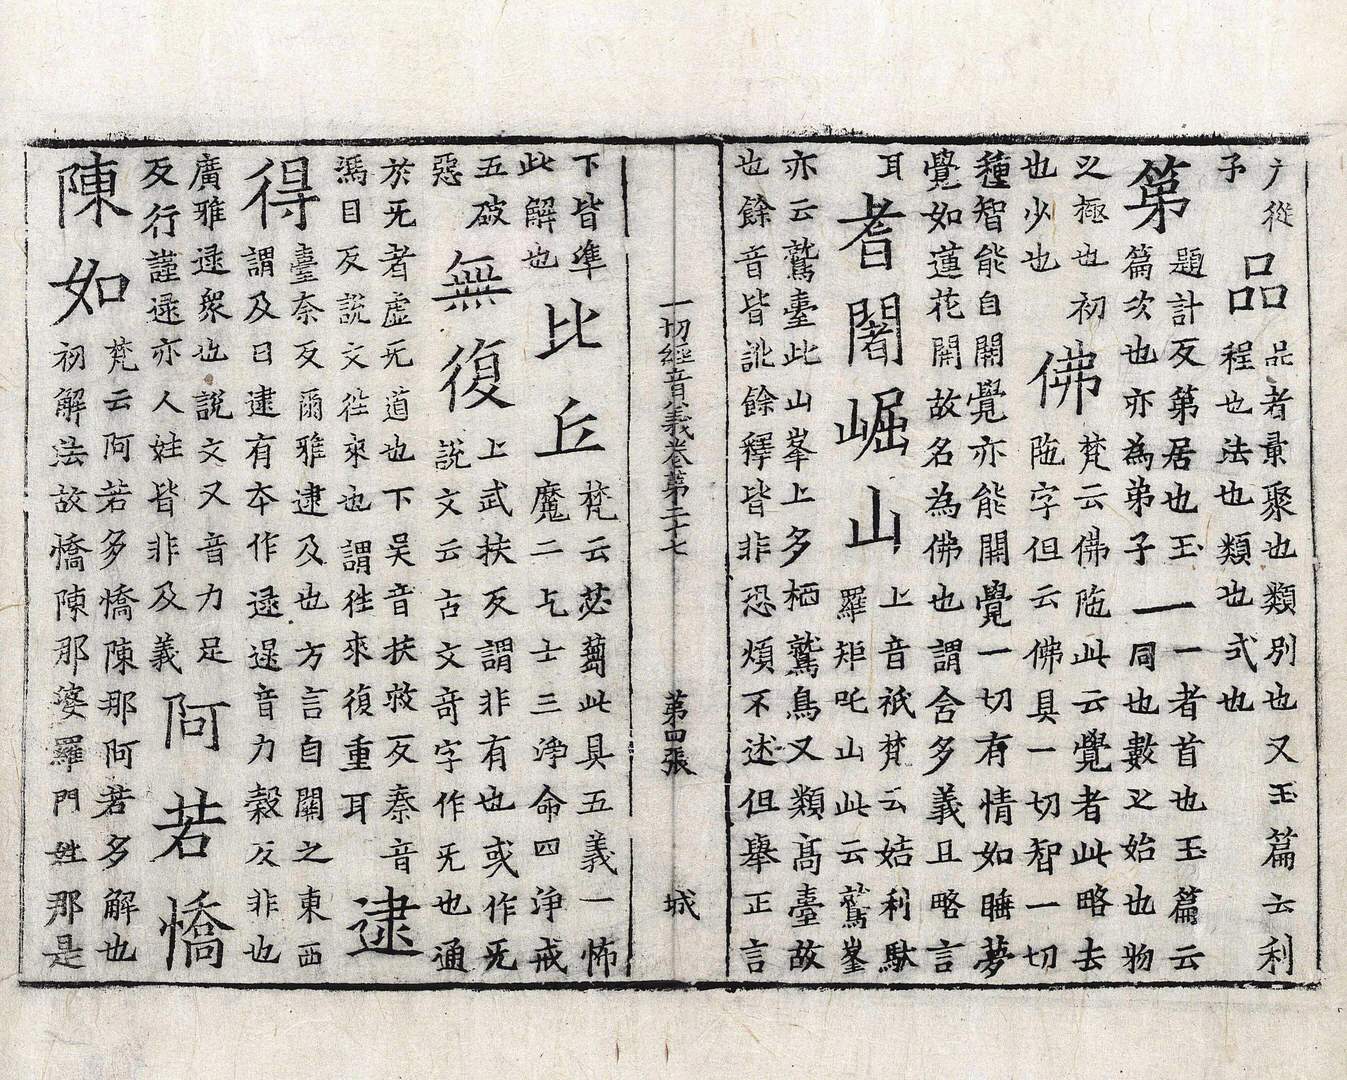 广從予品品者彚聚也類別也又玉篇云利程也法也類也式也
第題計反第居也玉篇次也亦為弟子一一者首也玉篇云同也數之始也物
之極也初也少也佛梵云佛陁此云覺者此略去陁字但云佛具一切智一切
種智能自開覺亦能開覺一切有情如睡夢覺如蓮花開故名為佛也謂含多義且略言
耳耆闍崛山上音祇梵云姞利馱羅矩吒山此云鷲峯
亦云鷲臺此山峯上多栖鷲鳥又類高臺故也餘音皆訛餘釋皆非恐煩不述但舉正言
一切經音義卷第二十七 第四張 城
下皆準此解也比丘梵云苾蒭此具五義一怖魔二乞士三淨命四淨戒
五破惡無復上武扶反謂非有也或作无說文云古文奇字作无也通
於无者虛无道也下吳音扶救反秦音馮目反說文往來也謂往來復重耳逮
得臺奈反爾雅逮及也方言自關之東西謂及曰逮有本作逯逯音力穀反非也
廣雅逯衆也說文又音力足反行謹逯亦人姓皆非及義阿若憍
陳如梵云阿若多憍陳那阿若多解也初解法故憍陳那婆羅門姓那是